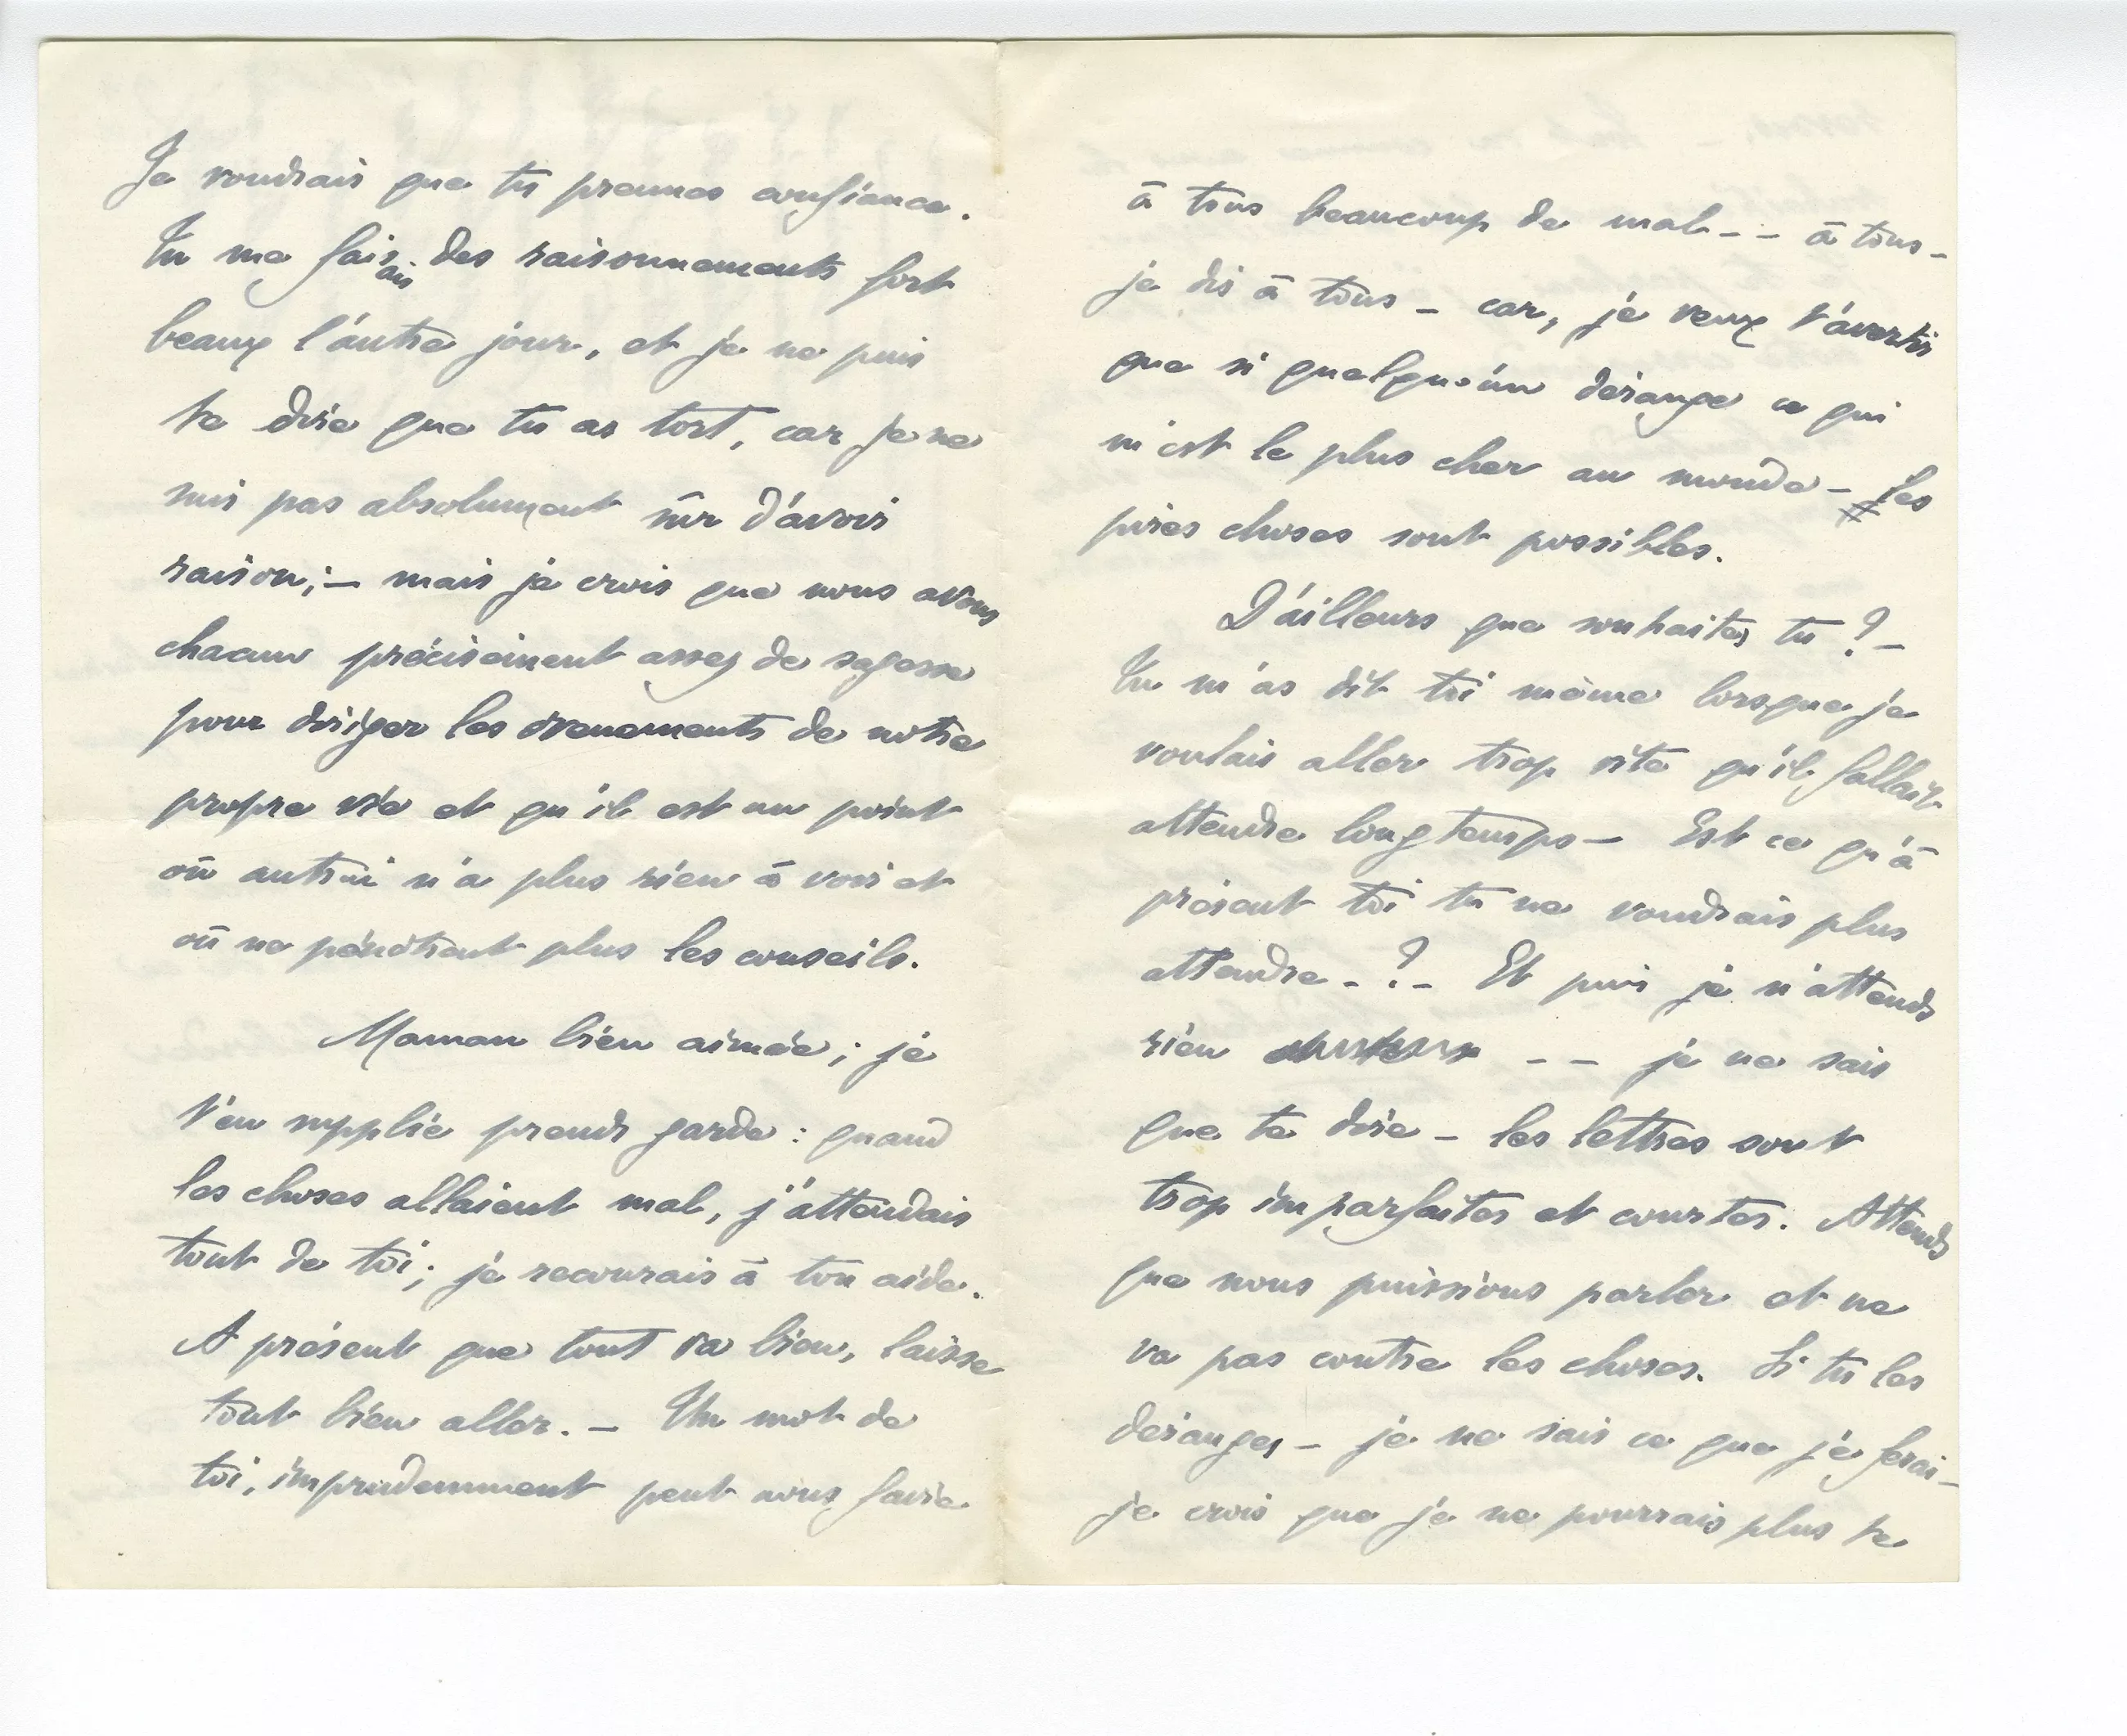 Je voudrais que tu prennes confiance.
Tu me faisais des raisonnements fort
beaux l'autre jour, et je ne puis
te dire que tu as tort, car je ne
suis pas absolument sûr d'avoir
raison; – mais je crois que nous avons
chacun précisément assez de sagesse
pour diriger les évenements de notre
propre vie et qu'il est un point
où autrui n'a plus rien à voir et
où ne pénètrent plus les conseils.
Maman bien aimée; je
t'en supplie prends garde : quand
les choses allaient mal, j'attendais
tout de toi; je recourais à ton aide.
A présent que tout va bien, laisse
tout bien aller. – Un mot de
toi, imprudemment peut nous faire
à tous beaucoup de mal – – à tous –
je dis à tous – car, je veux t'avertir
que si quelqu'un dérange ce qui
m'est le plus cher au monde – les
pires choses sont possibles.
D'ailleurs que souhaites tu ? –
Tu m'as dit toi même lorsque je
voulais aller trop vite qu'il fallait
attendre longtemps – Est ce qu'à
présent toi tu ne voudrais plus
attendre – ? – Et puis je n'attends
rien – – je ne sais
que te dire – les lettres sont
trop imparfaites et courtes. Attends
que nous puissions parler et ne
va pas contre les choses. Si tu les
déranges – je ne sais ce que je ferai –
je crois que je ne pourrais plus te